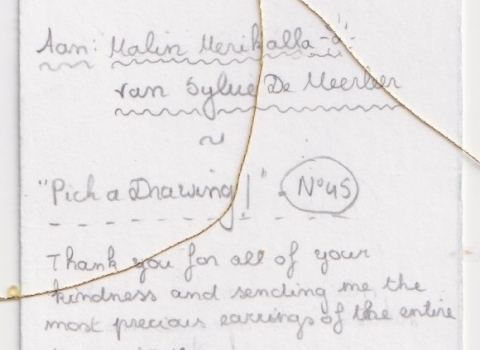 Aan: Malin Merikalla-
van Sylvie De Meerleer
~
"Pick a Drawing!" . N°45
Thank you for all of your
kindness and sending me the
most precious earrings of the entire